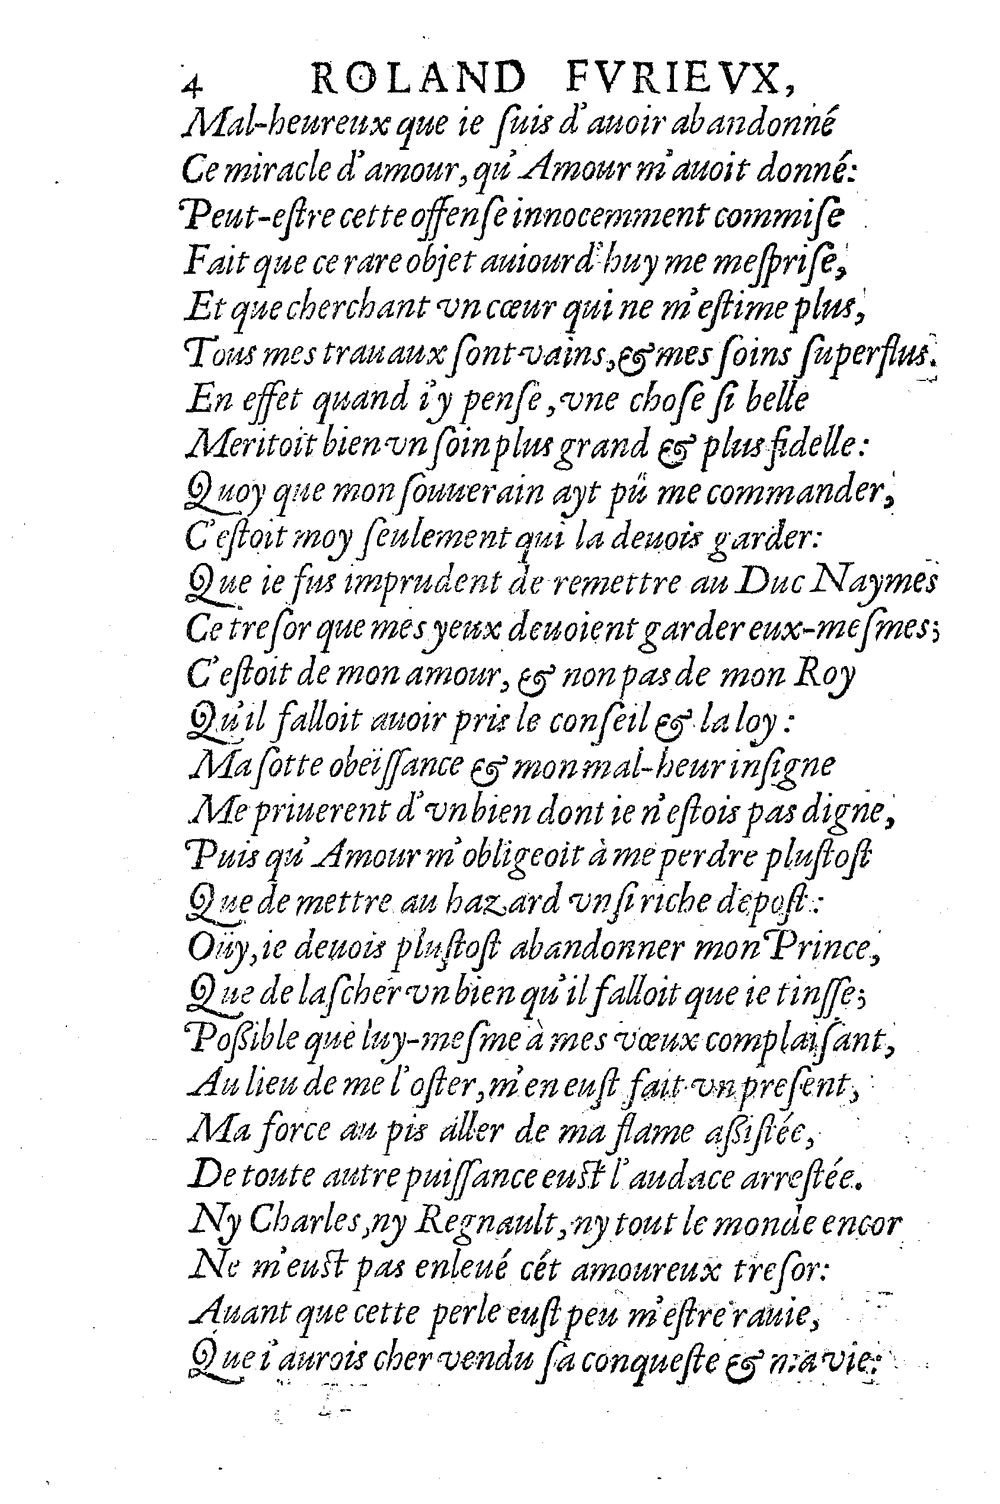 4 ROLAND FVRIEVX,
Mal-heureux que ie ſuis d'auoir abandonné
Ce miracle d'amour, qu'Amour m'auoit donné:
Peut-eſtre cette offenſe innocemment commiſe
Fait que ce rare objet auiourd'huy me meſpriſe,
Et que cherchant vn cœur qui ne m'eſtime plus,
Tous mes trauaux ſont vains, & mes ſoins ſuperflus.
En effet quand i'y penſe, vne choſe ſi belle
Meritoit bien vn ſoin plus grand & plus fidelle:
Quoy que mon ſouuerain ayt pû me commander,
C'eſtoit moy ſeulement qui la deuois garder:
Que ie fus imprudent de remettre au Duc Naymes
Ce treſor que mes yeux deuoient garder eux-meſmes;
C'eſtoit de mon amour, & non pas de mon Roy
Qu'il falloit auoir pris le conſeil & la loy:
Ma ſotte obeïſſance & mon mal-heur inſigne
Me priuerent d'vn bien dont ie n'eſtois pas digne,
Puis qu'Amour m'obligeoit à me perdre pluſtoſt
Que de mettre au hazard vn ſi riche depoſt:
Oüy, ie deuois pluſtoſt abandonner mon Prince,
Que de laſcher vn bien qu'il falloit que ie tinſſe;
Poßible que luy-meſme à mes vœux complaiſant,
Au lieu de me l'oſter, m'en euſt fait vn preſent,
Ma force au pis aller de ma flame aßiſtée,
De toute autre puiſſance euſt l'audace arreſtée.
Ny Charles, ny Regnault, ny tout le monde encor
Ne m'euſt pas enleué cét amoureux treſor:
Auant que cette perle euſt peu m'eſtre rauie,
Que i'aurois cher vendu ſa conqueſte & ma vie: